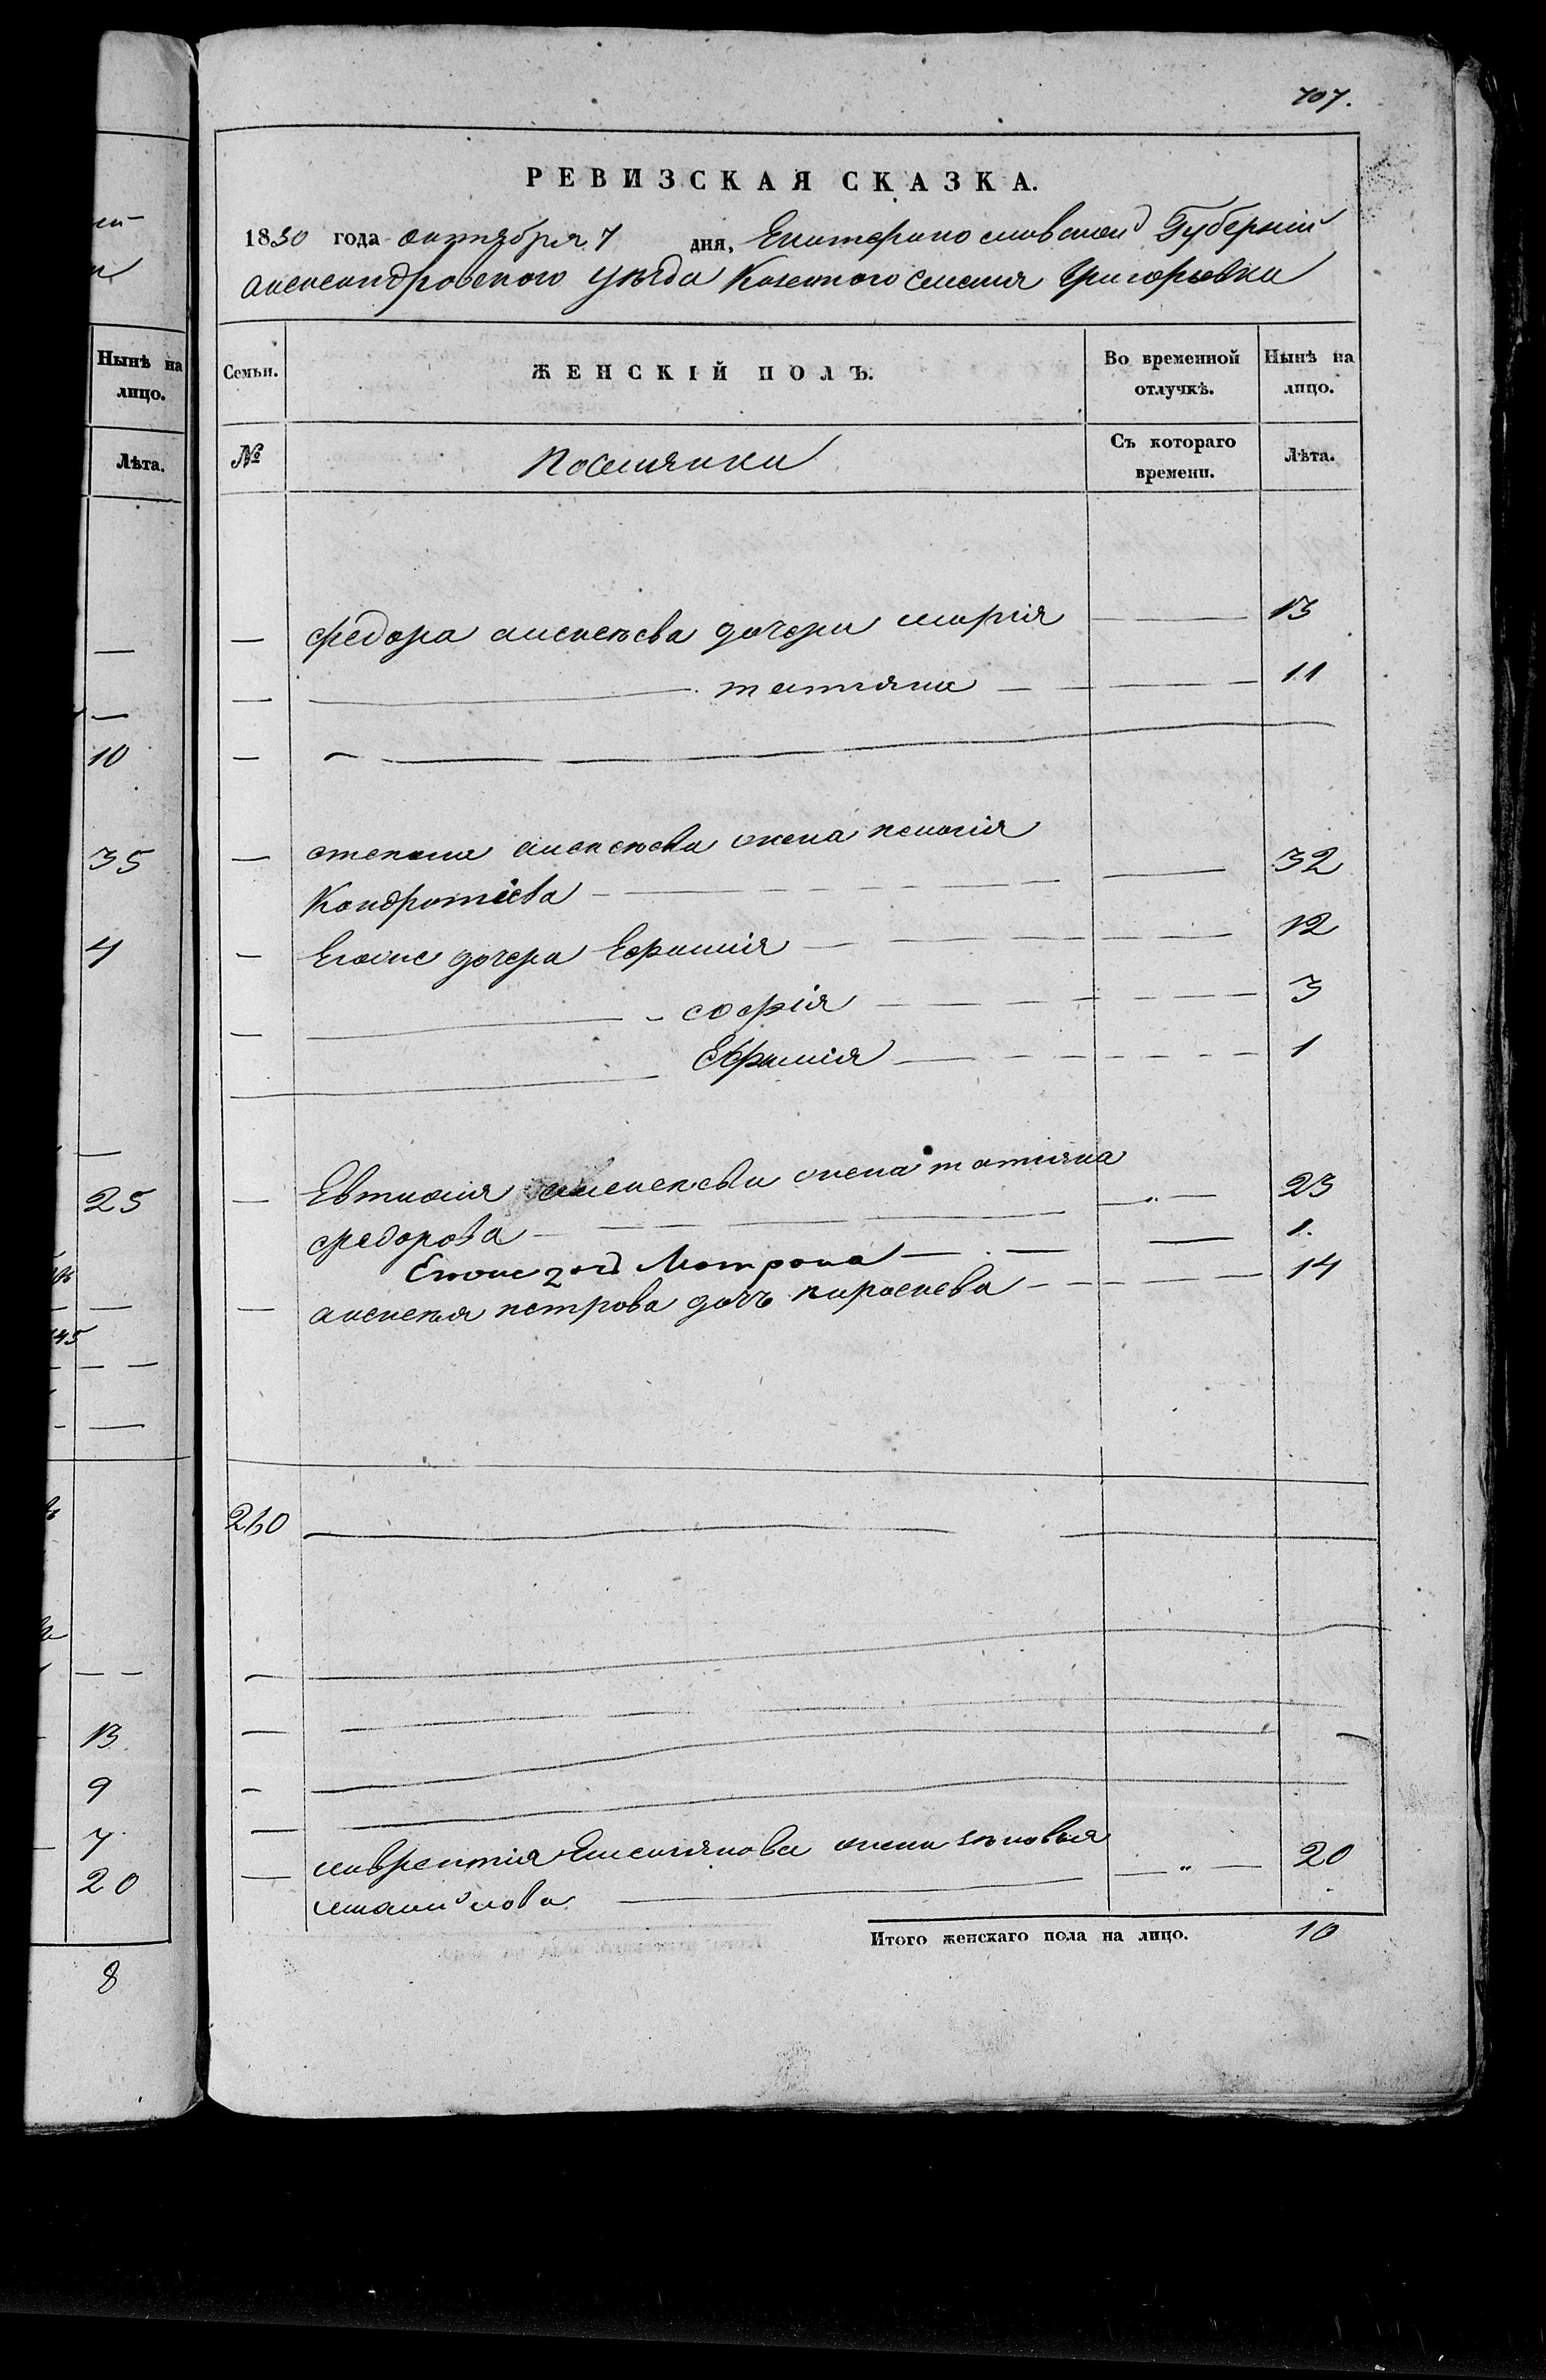 707.
РЕВИЗСКАЯ СКАЗКА.
1850 года октября 7 дня, Екатеринославской Губерніи
александровского уезда Казенного селения Григорьевки
Нынѣ на лицо.
Лѣта.
10
35
4
25
13
9
7
20
8
Семьи. ЖЕНСКІЙ ПОЛЪ. Во временной отлучкѣ. Нынѣ на лицо.
№ Поселянки Съ котораго времени. Лѣта.
— федора алексѣева дочери марія — 13
— татияна — 11
— степана алексѣева жена пелагія
Кондратіева — 32
— Егоже дочера Ефимия — 12
— софія — 3
Ефимія — 1
— Евтихия алексеева жена татияна
федорова — 23
Егоже доч Мотрона — 1.
— алексея петрова дочь параскева — 14
260
— лаврентия Емелиянова жена зѣновья
— 20
Итого женскаго пола на лицо. 10